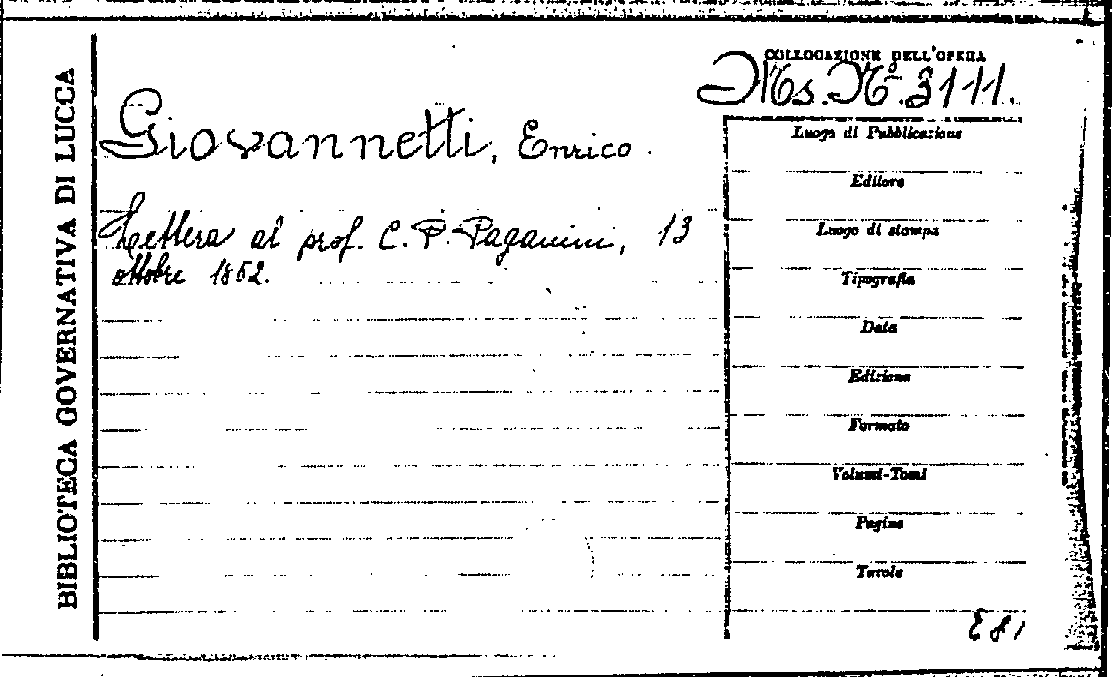 BIBLIOTECA GOVERNATIVA DI LUCCA
COLLOCAZIONE DELL'OPERA
Ms. N.º 3111.
Giovannetti, Enrico.
Lettera al prof. C. P. Paganini, 13
ottobre 1862.
Luogo di Pubblicazione
Editore
Luogo di stampa
Tipografia
Data
Edizione
Formato
Volumi-Tomi
Pagine
Tavole